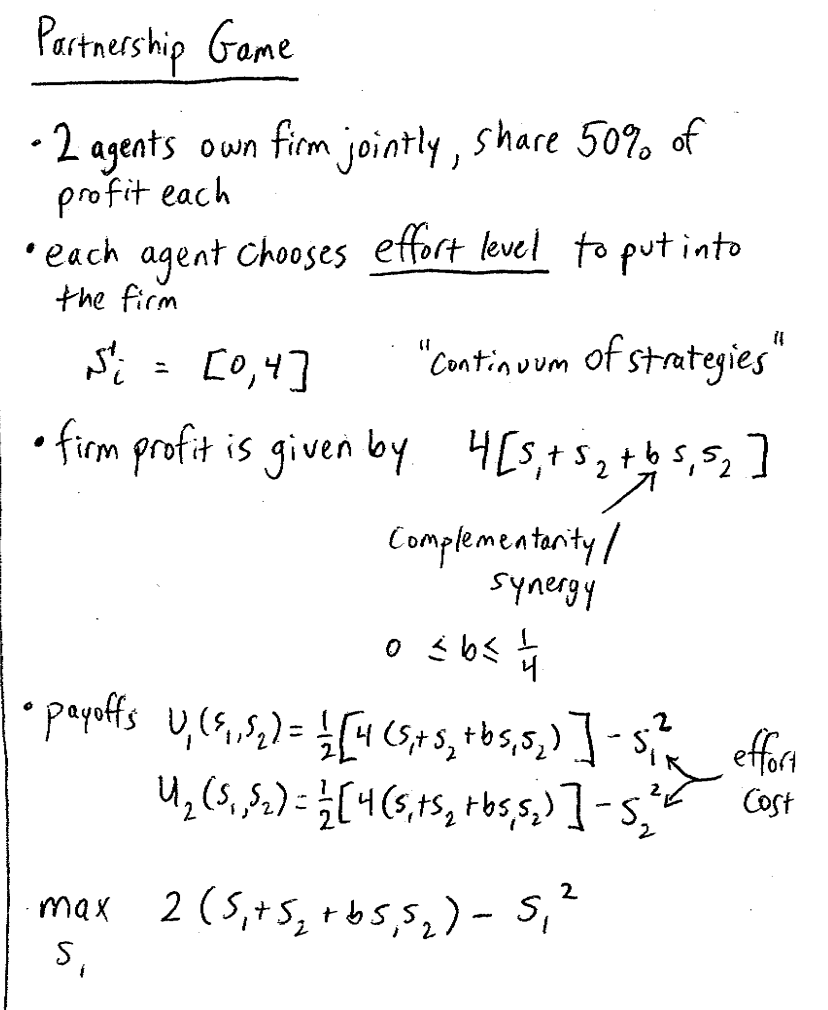 Partnership Game
• 2 agents own firm jointly, share 50% of
profit each
• each agent chooses effort level to put into
the firm
Sᵢ = [0,4] "Continuum of strategies"
• firm profit is given by 4[s₁+s₂+b s₁s₂]
Complementarity/
synergy
0 ≤ b ≤ 1/4
• payoffs U₁(s₁,s₂) = 1/2[4(s₁+s₂+bs₁s₂)] - s₁² effort
U₂(s₁,s₂) = 1/2[4(s₁+s₂+bs₁s₂)] - s₂² cost
max 2(s₁+s₂+bs₁s₂) - s₁²
s₁